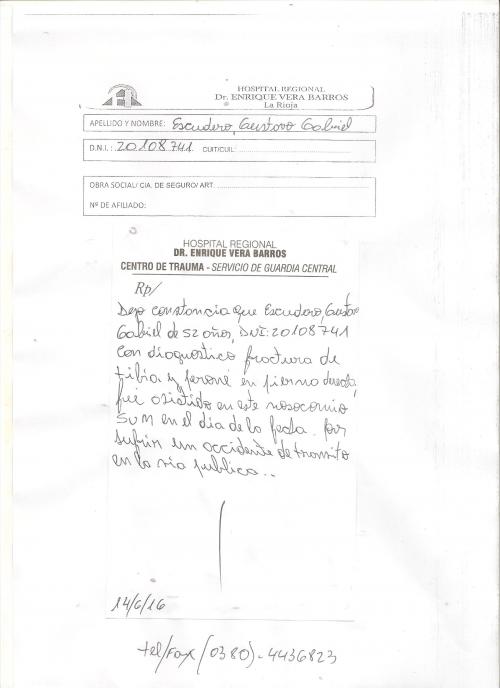 HOSPITAL REGIONAL
Dr. ENRIQUE VERA BARROS
La Rioja
APELLIDO Y NOMBRE: Escudero, Gustavo Gabriel
D.N.I.: 20108741 CUIT/CUIL:
OBRA SOCIAL/ CIA. DE SEGURO/ ART:
Nº DE AFILIADO:
HOSPITAL REGIONAL
DR. ENRIQUE VERA BARROS
CENTRO DE TRAUMA - SERVICIO DE GUARDIA CENTRAL
Rp/
Dejo constancia que Escudero, Gustavo
Gabriel de 52 años, DNI: 20108741
Con diagnostico fractura de
tibia y peroné en pierna derecha,
fue asistido en este nosocomio
en el dia de la fecha. Por
sufrir un accidente de transito
en la via publica..
14/6/16
tel/Fax (0380)-4436823